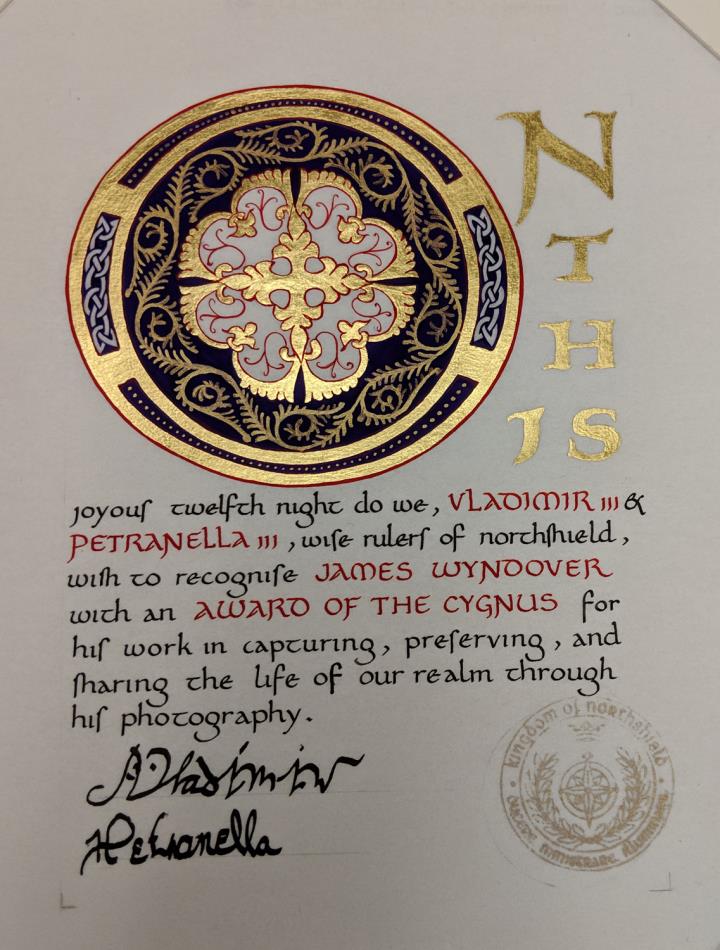 ON
T
H
IS
joyouſ twelfth night do we, VLADIMIR III &
PETRANELLA III, wiſe rulerſ of northſhield,
wiſh to recogniſe JAMES WYNDOVER
with an AWARD OF THE CYGNUS for
hiſ work in capturing, preſerving, and
ſharing the life of our realm through
hiſ photography.
Vladimir
Petranella
kingdom of northshield